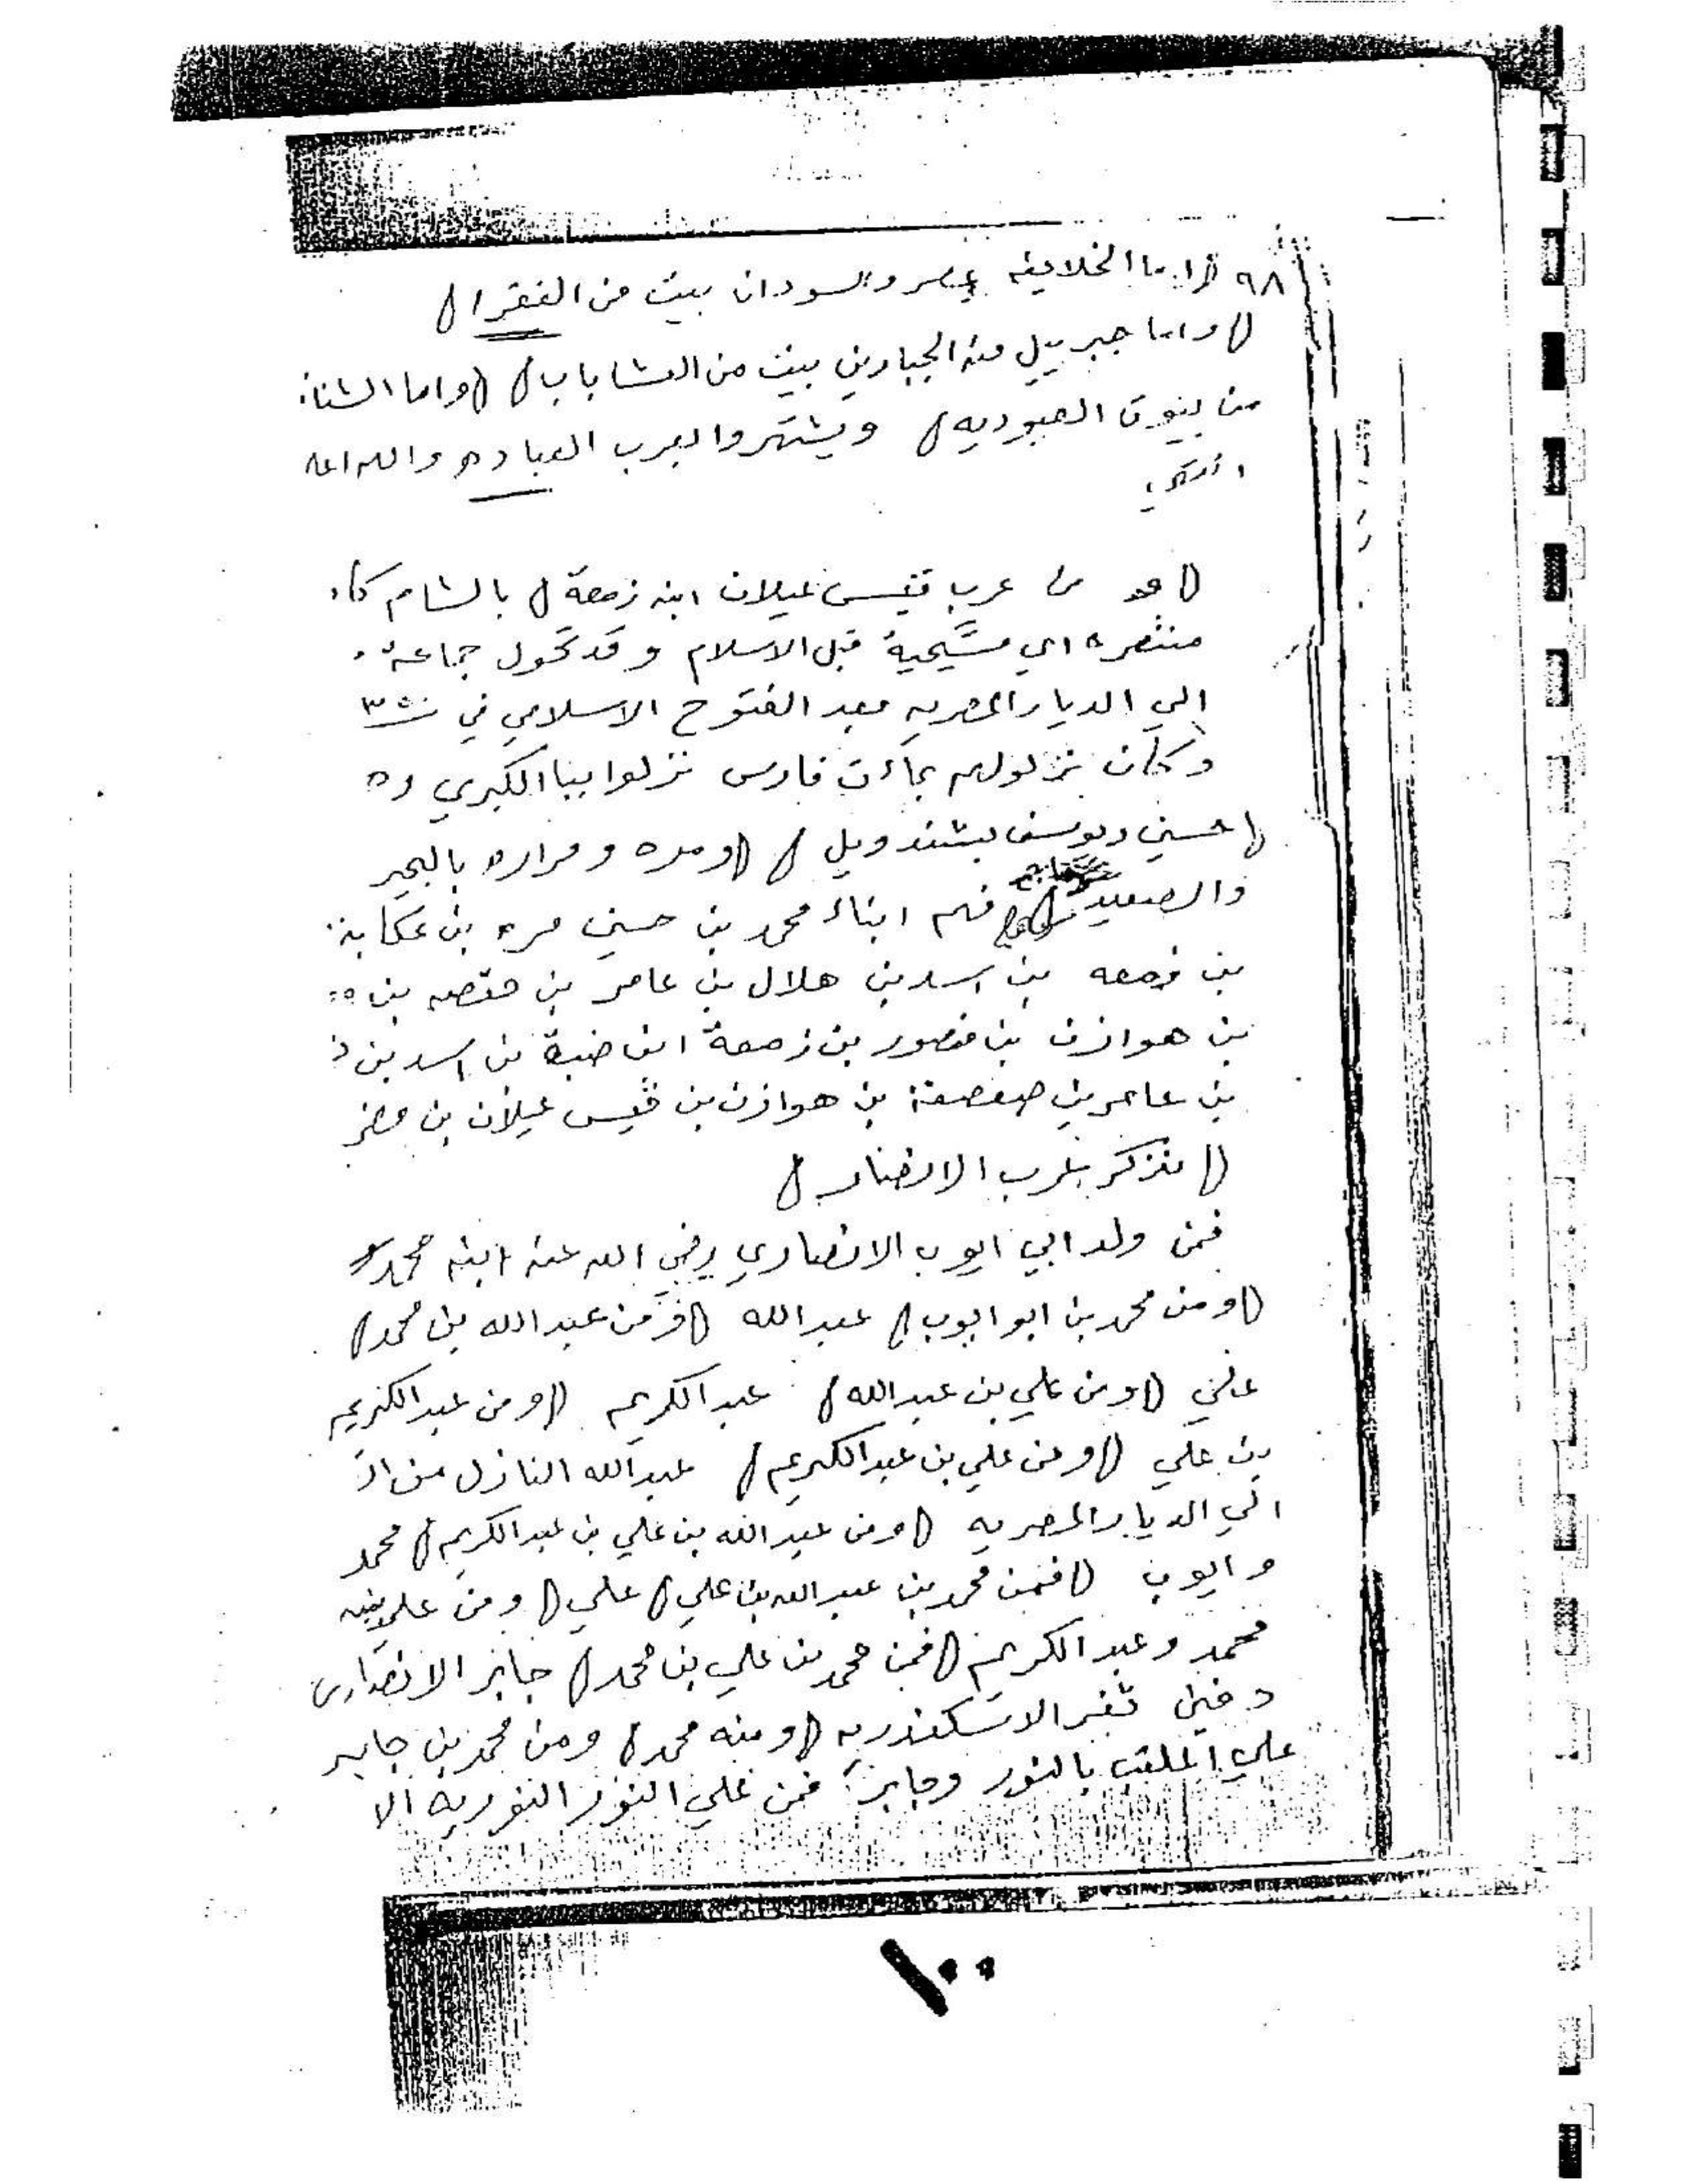 ٩٨ (واما الخلايفه بمصر والسودان بيت من الفقرا)
(واما جبرييل منه الجبارين بيت من العشاباب) (واما الشنا
من بيوت العبوديه) ويشتهروا بعرب العباده والله اعلم
( من عرب قيس عيلان ابنه زمعة) بالشام
منتصره اي مسيحية قبل الاسلام وقد تحول جماعة
إلي الديار المصريه بعد الفتوح الاسلامي في
وكان نزولهم فارس نزلوا ببا الكبري
(حسين ويوسف بشندويل) (ومره ومراره بالبحير
والصعيد فهم ابناء محمد بن حسين مره بن عكابه
بن زمعه بن اسد بن هلال بن عامر بن بن
بن هوازن بن منصور بن زمعة ابن ضبة بن اسد بن
بن عامر بن صعصعة بن هوازن بن قيس عيلان بن مضر
(نذكر عرب الانصار)
فمن ولد ابي ايوب الانصاري رضي الله عنه ابنه محمد
(ومن محمد بن ابو ايوب) عبدالله (ومن عبدالله بن محمد)
علي (ومن علي بن عبدالله) عبدالكريم (ومن عبدالكريم
بن علي (ومن علي بن عبدالكريم) عبدالله النازل من
الي الديار المصريه (ومن عبدالله بن علي بن عبدالكريم) محمد
وايوب (فمن محمد بن عبدالله بن علي) علي (ومن علي بنيه
محمد وعبدالكريم (فمن محمد بن علي بن محمد) جابر الانصاري
دفين ثغر الاسكندريه (ومنه محمد) ومن محمد بن جابر
علي الملقب بالنور وجابر فمن علي النور النوريه
١٠٠